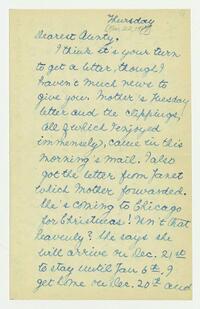 Thursday
Dearest Aunty.
I think it's your turn
to get a letter, though I
haven't much news to
give you. Mother's Tuesday
letter and the clippings,
all of which I enjoyed
immensely, came in this
morning's mail. I also
got the letter from Janet
which Mother forwarded.
She's coming to Chicago
for Christmas! Isn't that
heavenly? She says she
will arrive on Dec. 21st
to stay until Jan 6th. I
get home on Dec. 20th and